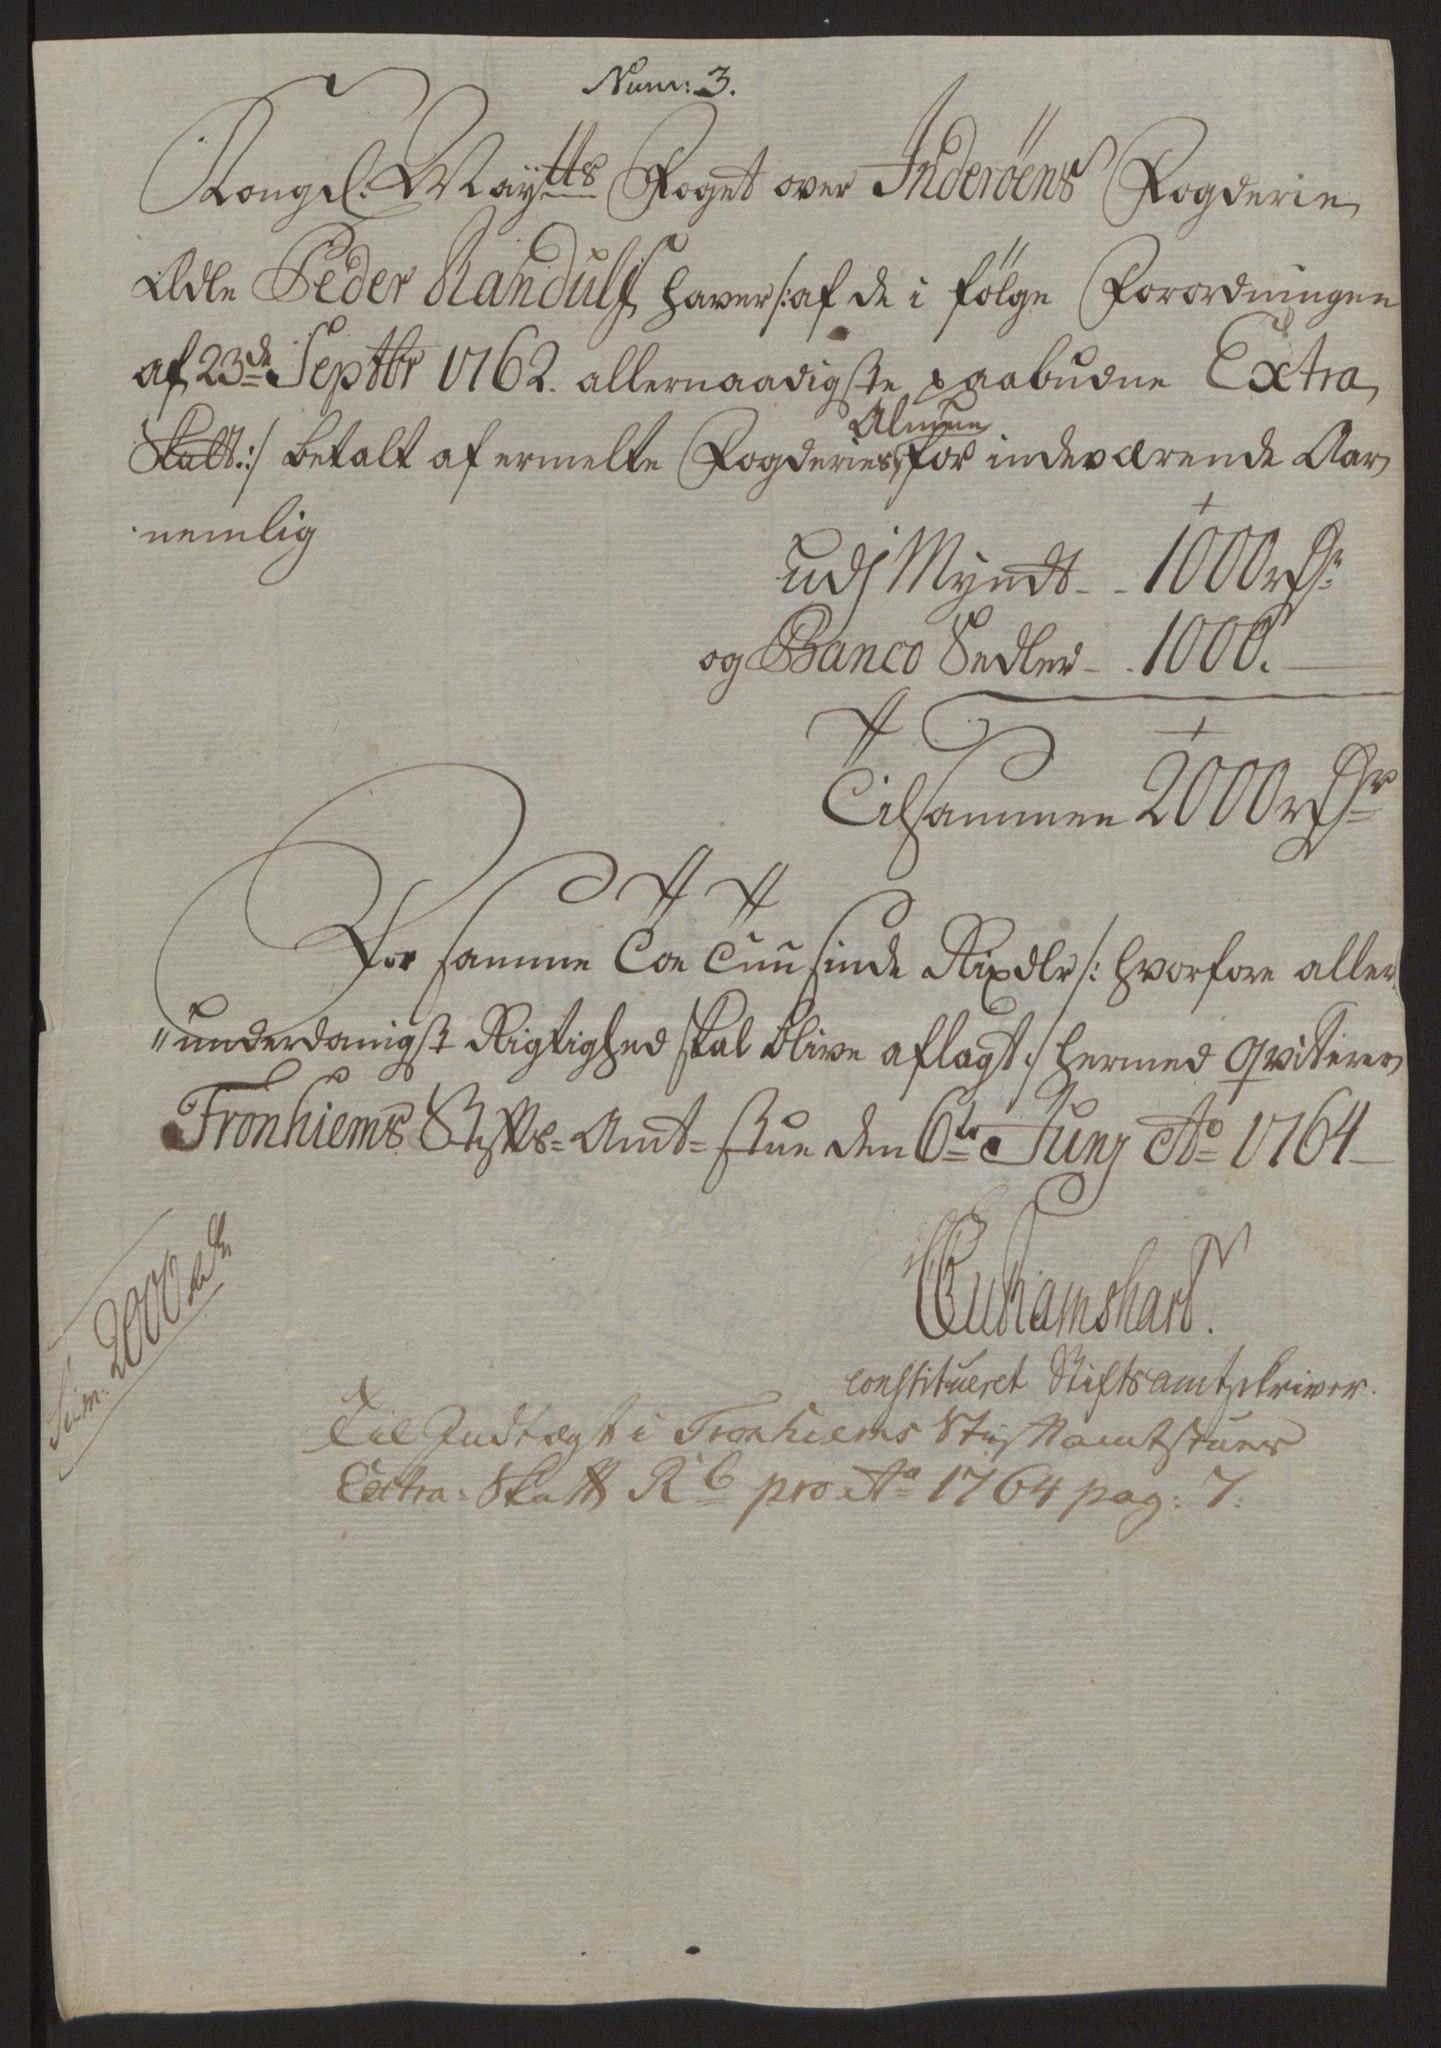 Num: 3.
Kongl: Maytts Foget over Inderöens Fogderie
Ædle Peder Randulf haver /: af de i fölge Forordningen
af 23de Septbr 1762. allernaadigste paabudne Extra
Skatt :/ betalt af ermelte Fogderies Almue for indeværende Aar
nemlig
udj Myndt - - 1000 rdr
og Banco Sedler - - 1000.
Tilsammen 2000 rdr
For samme Toe Tuusinde Rixdlr /: hvorfore aller
"underdanigst Rigtighed skal blive aflagt :/ hermed qviterer
Tronhiems Stifts- Amt- stue den 6te Junj Ao 1764
Ramshart.
constitueret Stiftsamtskriver.
Sum: 2000 rdr
Til Indtægt i Tronhiems Stiftamtstues
Extra: Skatt R: pro Ao 1764 pag: 7: